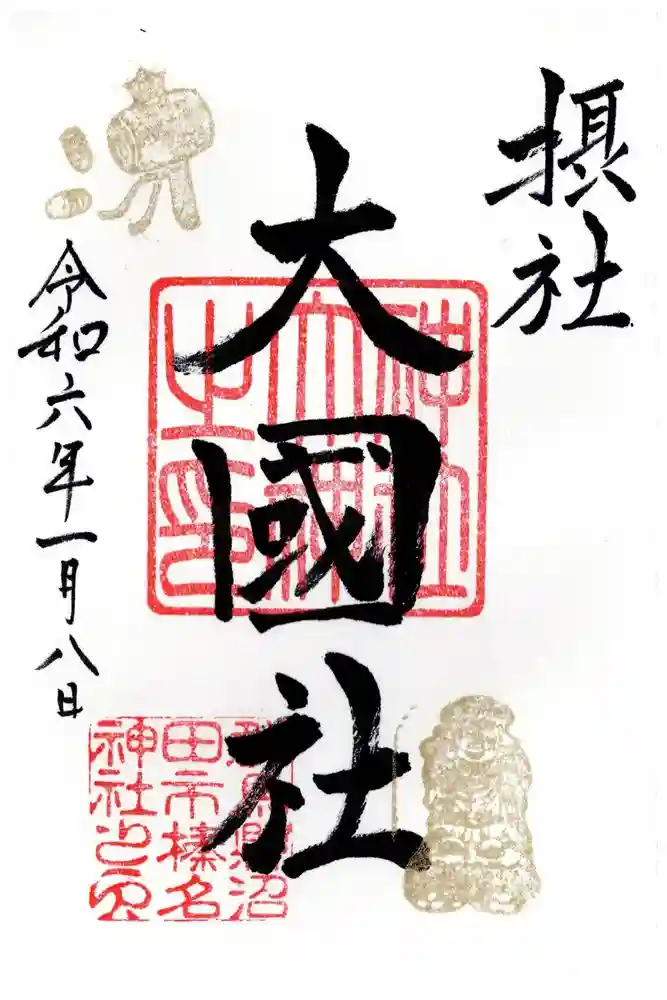 摂社
大國社
令和六年一月八日
群馬縣沼
田市榛名
神社之印